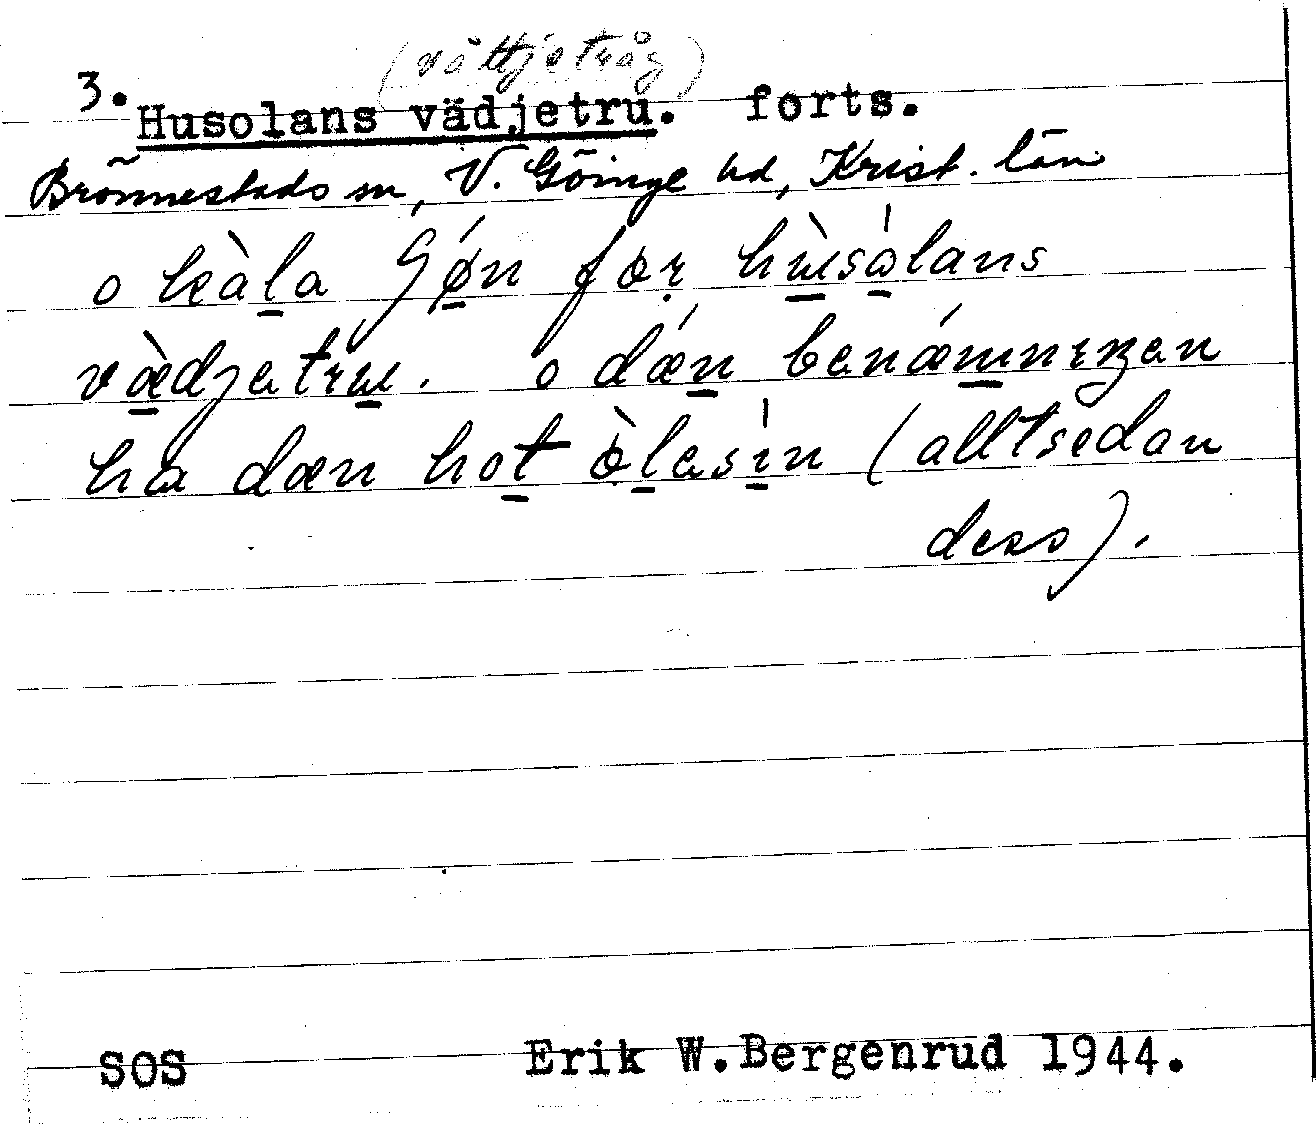 (vättjetråg)
3. Husolans vädjetru. forts.
Brönnestads sn, V. Göinge hd, Krist. län
o kàla Sjǿn før hùsólans
vædjetru. o dæn benæmniŋen
ha dæn hot òlesín (alltsedan
dess).
SOS Erik W. Bergenrud 1944.